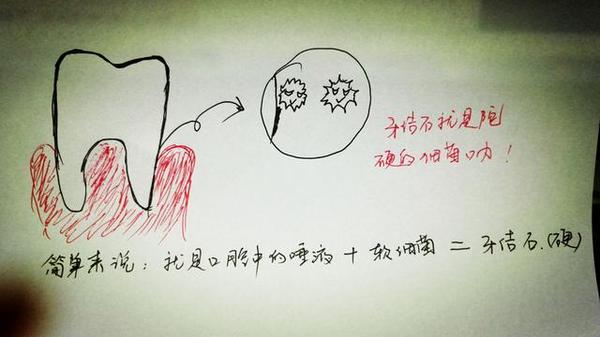 牙结石就是陀
硬的细菌呐！
简单来说：就是口腔中的唾液+软细菌=牙结石.(硬)